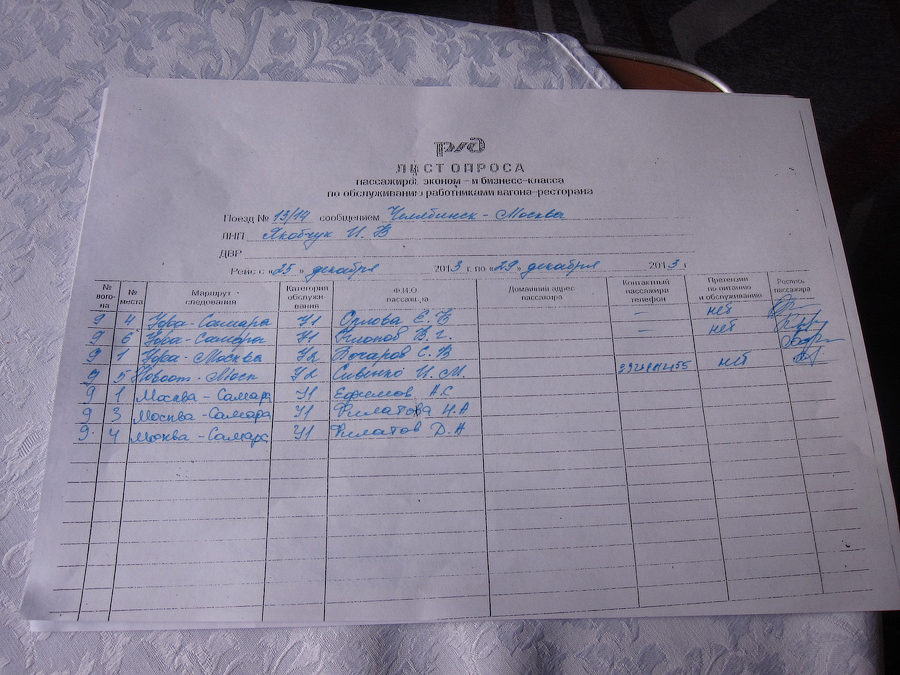 РЖД
ЛИСТ ОПРОСА
пассажиров эконом - и бизнес-класса
по обслуживанию работниками вагона-ресторана
Поезд № 13/14 сообщением Челябинск - Москва
ЛНП Якобчук И. В
ДВР
Рейс с «25» декабря 2013 г. по «29» декабря 2013 г
№ ваго-на № места Маршрут следования Категория обслужи-вания Ф.И.О. пассажира Домашний адрес пассажира Контактный пассажира телефон Претензии по питанию и обслуживанию Роспись пассажира
9 4 Уфа - Самара У1 Орлова Е. В — нет
9 6 Уфа - Самара У1 В. г. — нет
9 1 Уфа - Москва У2 Бочаров С. В
9 5 У2 Сивенко И. М. нет
9 1 Москва - Самара У1 Ефремов А.С
9 3 Москва - Самара У1 Филатова Н.А
9. 4 Москва - Самара У1 Филатов Д.А